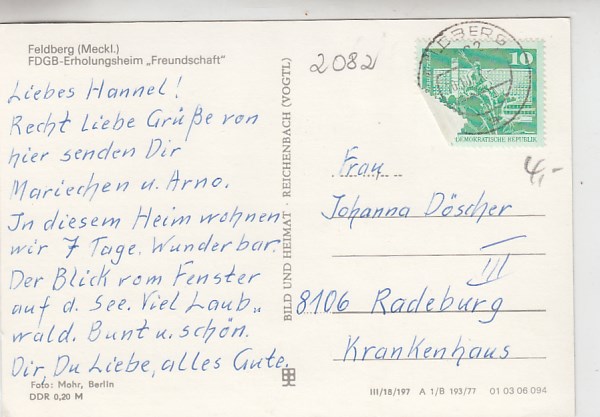 Feldberg (Meckl.)
FDGB-Erholungsheim „Freundschaft"
Liebes Hannel!
Recht Liebe Grüße von
hier senden Dir
Mariechen u. Arno.
In diesem Heim wohnen
wir 7 Tage. Wunderbar.
Der Blick vom Fenster
auf d. See. Viel Laub„
wald. Bunt u. schön.
Dir, Du Liebe, alles Gute.
Foto: Mohr, Berlin
DDR 0,20 M
BILD UND HEIMAT · REICHENBACH (VOGTL)
2082
DBERG
10
DEMOKRATISCHE REPUBLIK
4,-
Frau
Johanna Döscher
III
8106 Radeburg
Krankenhaus
III/18/197 A 1/B 193/77 01 03 06 094